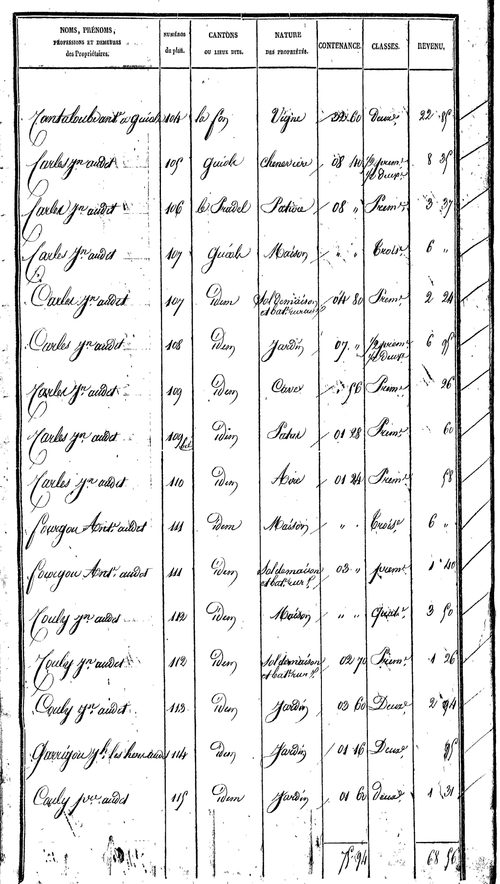 NOMS, PRÉNOMS, PROFESSIONS ET DEMEURES des Propriétaires. NUMÉROS du plan. CANTONS OU LIEUX DITS. NATURE DES PROPRIÉTÉS. CONTENANCE. CLASSES. REVENU.
Cantaloub ant.e a guiole 104 la fon Vigne 22 60 Deux.e 22 85
Carles jn audet 105 guiole cheneviere 08 40 1/2 prem.e 1/2 deux.e 8 35
Carles jn audet 106 le Pradel Pature 08 " Prem.e 3 37
Carles jn audet 107 Guiole Maison " " Crois.e 6 "
Carles jn audet 107 Idem Sol de maison et bat. rural 04 80 Prem.e 2 24
Carles jn audet 108 Idem Jardin 07 " 1/2 prem.e 1/2 Deux.e 6 95
Carles jn audet 109 Idem Cave 56 Prem.e 26
Carles jn audet 109 bis Idem Patus 01 28 Prem.e 60
Carles jn audet 110 Idem Aire 01 24 Prem.e 58
fourgou Ant.e audet 111 Idem Maison " " Crois.e 6 "
fourgou Ant.e audet 111 Idem Sol de maison et bat. rur.l 03 " prem.e 1 40
Couly jn audet 112 Idem Maison " " 3 50
Couly jn audet 112 Idem Sol de maison et bat. rur.l 02 70 Prem.e 1 26
Couly jn audet 113 Idem Jardin 03 60 Deux.e 2 94
Garrigou jh les heritiers 114 Idem Jardin 01 16 Deux.e 95
Couly audet 115 Idem Jardin 01 60 deux.e 1 31
75 94 68 56